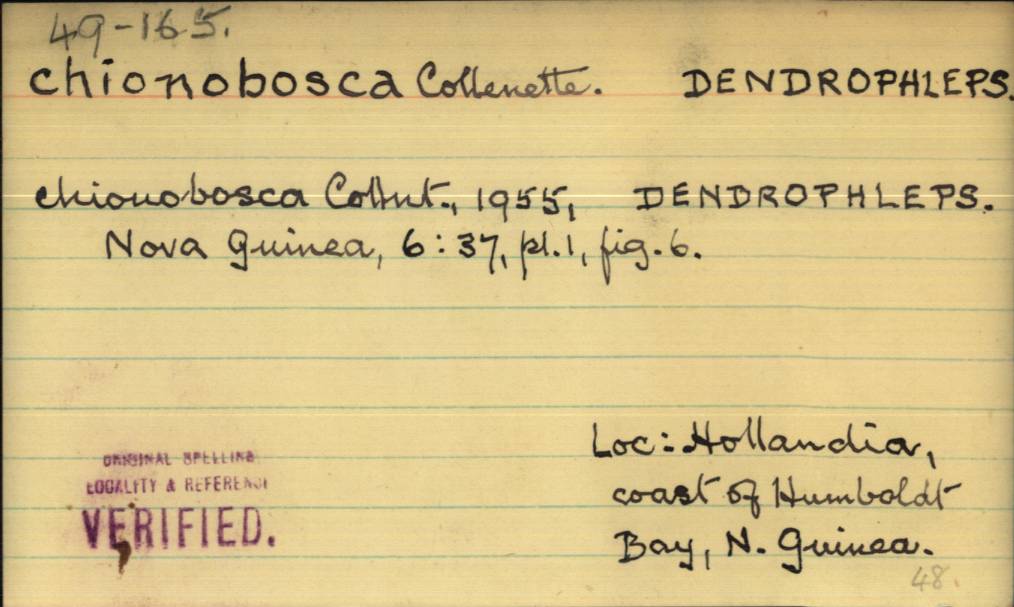 49-165.
chionobosca Collenette. DENDROPHLEPS.
chionobosca Collnt., 1955, DENDROPHLEPS.
Nova Guinea, 6:37, pl.1, fig.6.
Loc: Hollandia,
coast of Humboldt
Bay, N. Guinea.
48.
ORIGINAL SPELLING
LOCALITY & REFERENCE
VERIFIED.